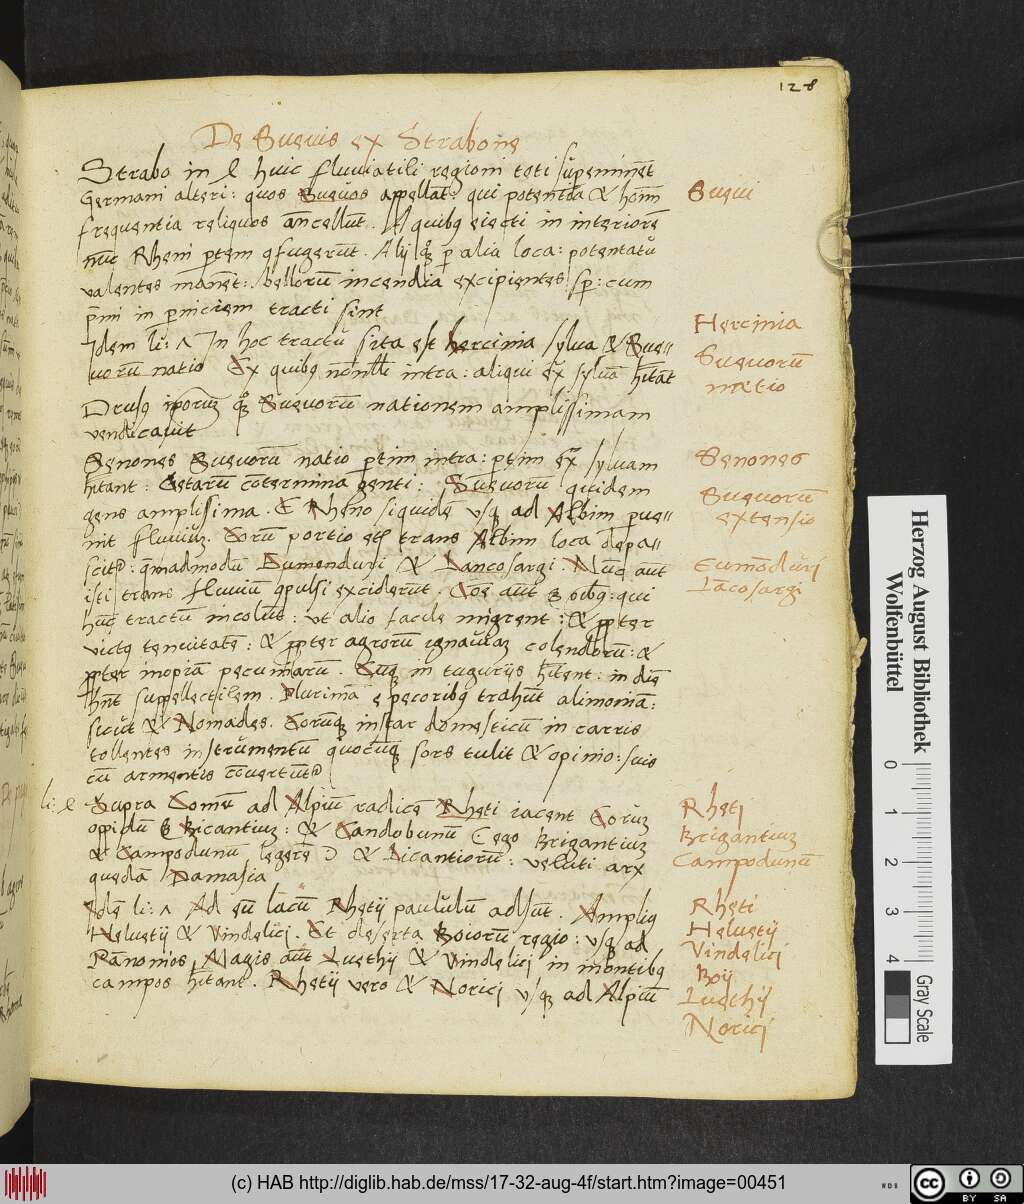 128
De Sueuis ex Strabone
Strabo in ł huic fluuiatili regioni toti supeminēt
Germani alteri: quos Sueuos appellāt: qui potentia & hoīm
frequentia reliquos ancellūt. A quibꝗ eiecti in interiorē
nūc Rheni ptem ꝯfugerūt. Alij ꝗꝫ p alia loca: potentatū
valentes manēt: bellorū incendia excipientes sp: cum
pmi in pniciem tracti sint
Idem li: ʌ In hoc tractu sita est hercinia sylua & Sue=
uorū natio Ex quibꝗ nōnlli intra: aliqui ext̄ syluā hitāt
Drusꝗ ipoꝝ ꝗꝫ Sueuorū nationem amplissimam
vendicauit
Senones Sueuorū natio ptim intra: ptim ext̄ syluam
hitant: Getarū cōtermina genti: Sueuorū quidem
gens amplissima. E Rheno siquidē vsꝗ ad Albim pue=
nit fluuiuꝫ. Eorū portio etē trans Albim loca depa=
scit: qmadmodū Eumenduri & Lancosargi. Nūc aūt
isti trans fluuiū ꝯpulsi exciderūt. Cōe aūt ē oībꝗ: qui
hūc tractum incolūt: vt alio facile migrent: & ppter
victꝗ tenuitatē: & ppter agrorū ignauiaꝫ colendorū: &
ppter inopiā pecuniarū. Cūꝗ in tugurijs hitent: in diē
hnt suppellectilem. Plurimā e pecoribꝗ trahūt alimoniā:
sicut & Nomades. Eorūꝗꝫ instar domesticū in carris
tollentes instrumentū quocūꝗꝫ sors tulit & opinio: suis
cū armentis cōuertūt
li: ł Supra Comū ad Alpiū radicē Rheti iacent Eoruꝫ
oppidū ē Bicantiuꝫ: & Candobunū C ego Brigantiuꝫ
& Campodunū legerē Ɔ & Bicantiorū: veluti arx
quedā Damasia
Idē li: ʌ Ad eū lacū Rhetij paululū adsūt. Amplią
Heluetij & Vindelici. Et deserta Boiorū regio: vsꝗ ad
Pānonios Magis aūt Luethij & Vindelicj in montibꝗ
campos hitant. Rhetij vero & Noricj vsꝗꝫ ad Alpiū
Sueui
Hercinia
Sueuorū
natio
Senones
Sueuorū
extensio
Eumōdurj
Lācosargi
Rhetj
Brigantiuꝫ
Campodunū
Rheti
Heluetij
Vindelicj
Boij
Luethij
Noricj
Herzog August Bibliothek
Wolfenbüttel
0 1 2 3 4
Gray Scale
(c) HAB http://diglib.hab.de/mss/17-32-aug-4f/start.htm?image=00451
WDB
cc BY SA